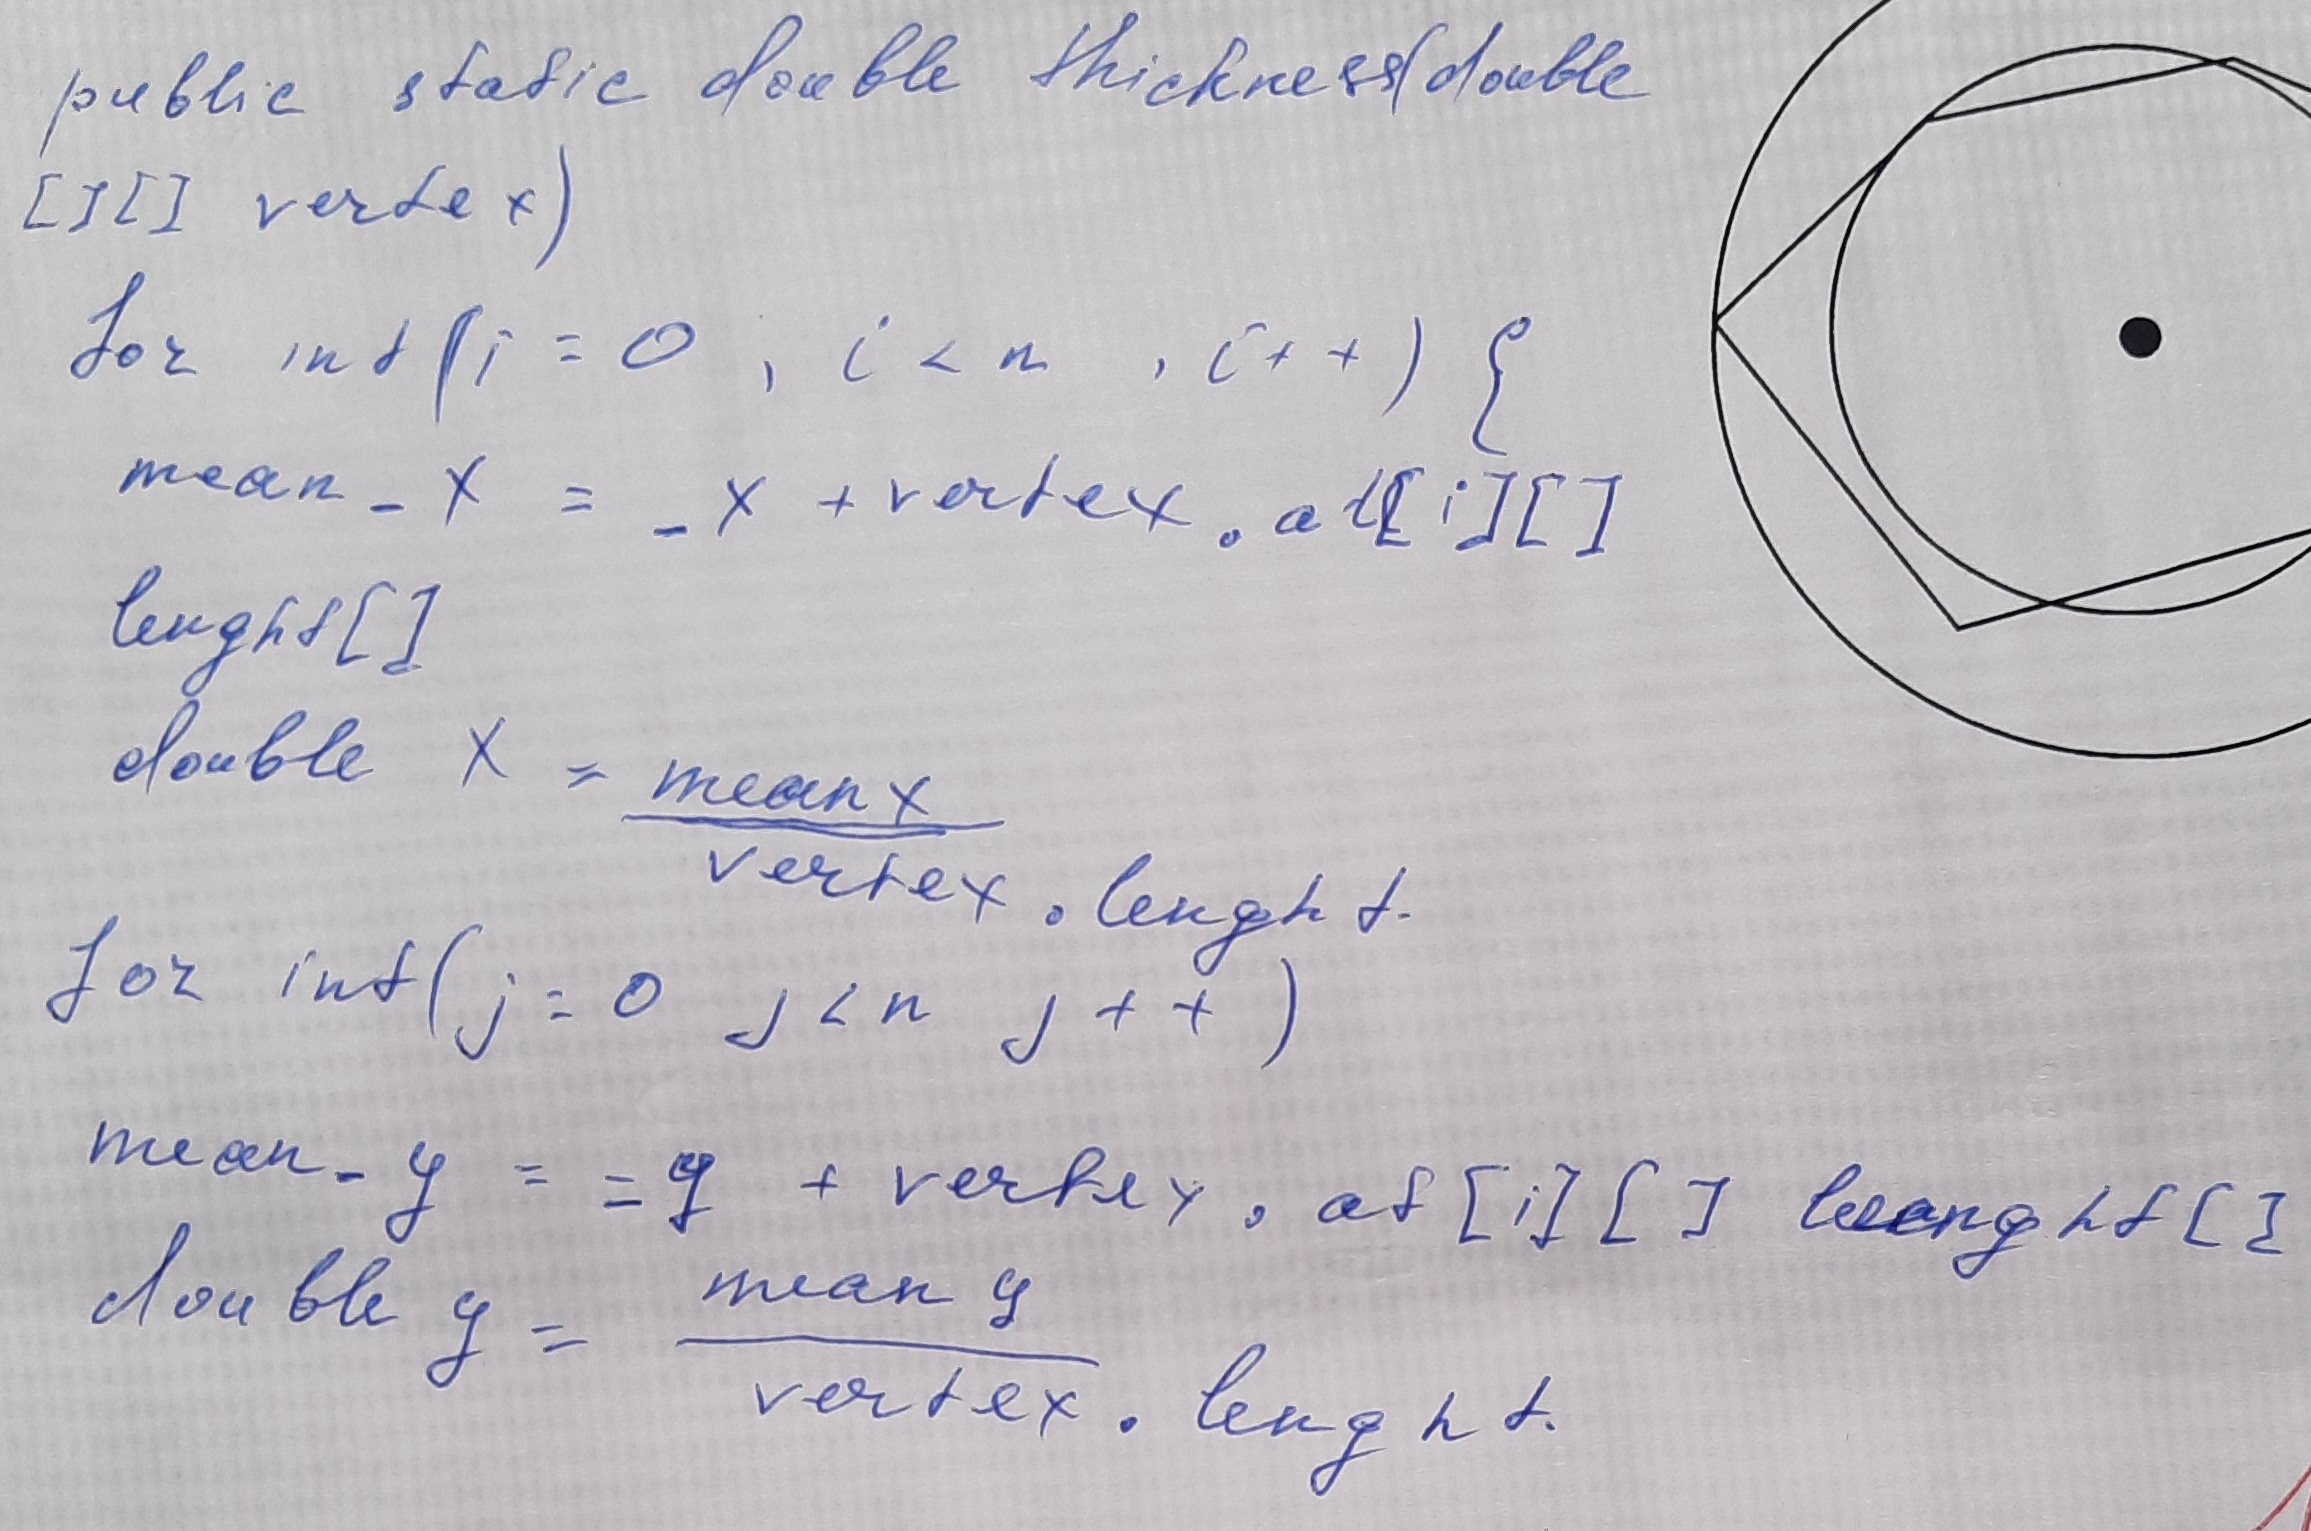 public static double thickness(double
[][] vertex)
for int(i = 0 , i < n , i++) {
mean_x = _x + vertex.at[i][]
lenght[]
double x = mean x
vertex.lenght.
for int(j = 0 j < n j++)
mean_y = =y + vertex.at[i][] lenght[]
double y = mean y
vertex.lenght.